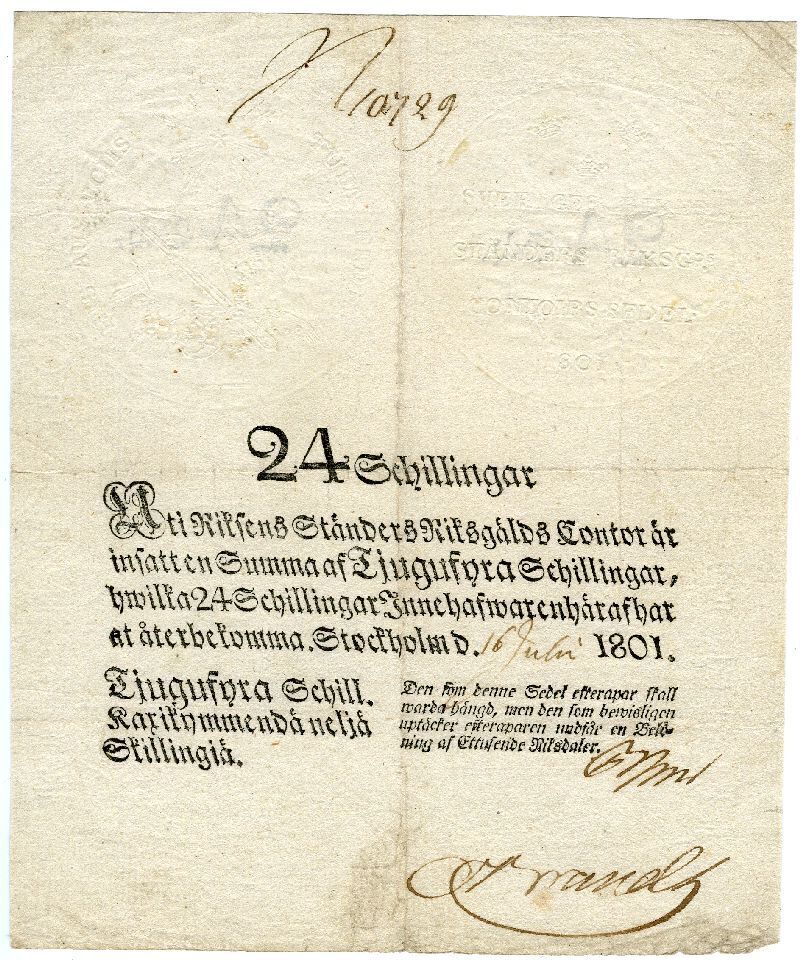 N 10729
SVERIGES
STÄNDERS RIKSGS
CONTOIRS SEDEL
1801
24 Schillingar
Uti Riksens Ständers Riksgälds Contor är
insatt en Summa af Tjugufyra Schillingar,
hwilka 24 Schillingar Innehafwaren häraf har
at återbekomma. Stockholm d. 16 Julii 1801.
Tjugufyra Schill.
Kaxikymmendä neljä
Skillingiä.
Den som denne Sedel efterapar skall
warda hängd, men den som bewisligen
uptäcker efteraparen undfår en Belö-
ning af Ettusende Riksdaler.